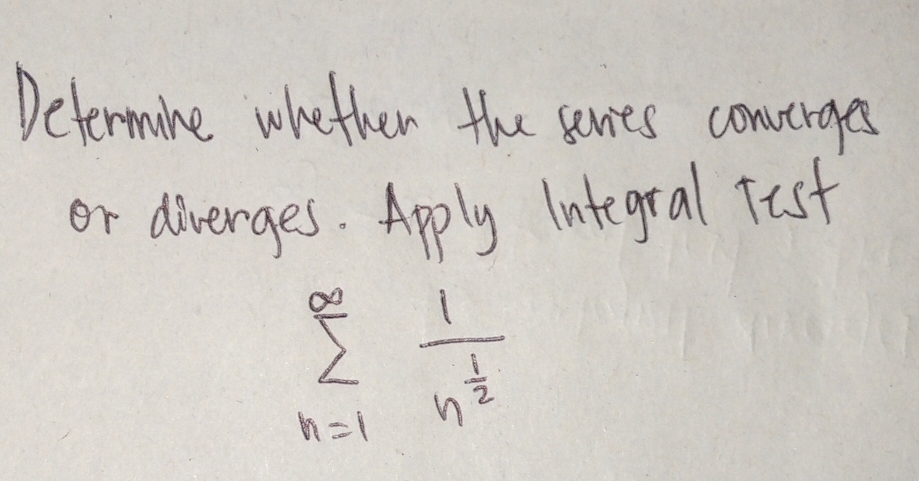 Determine whether the series converges
or diverges. Apply Integral Test
∞
∑ 1/n^(1/2)
n=1